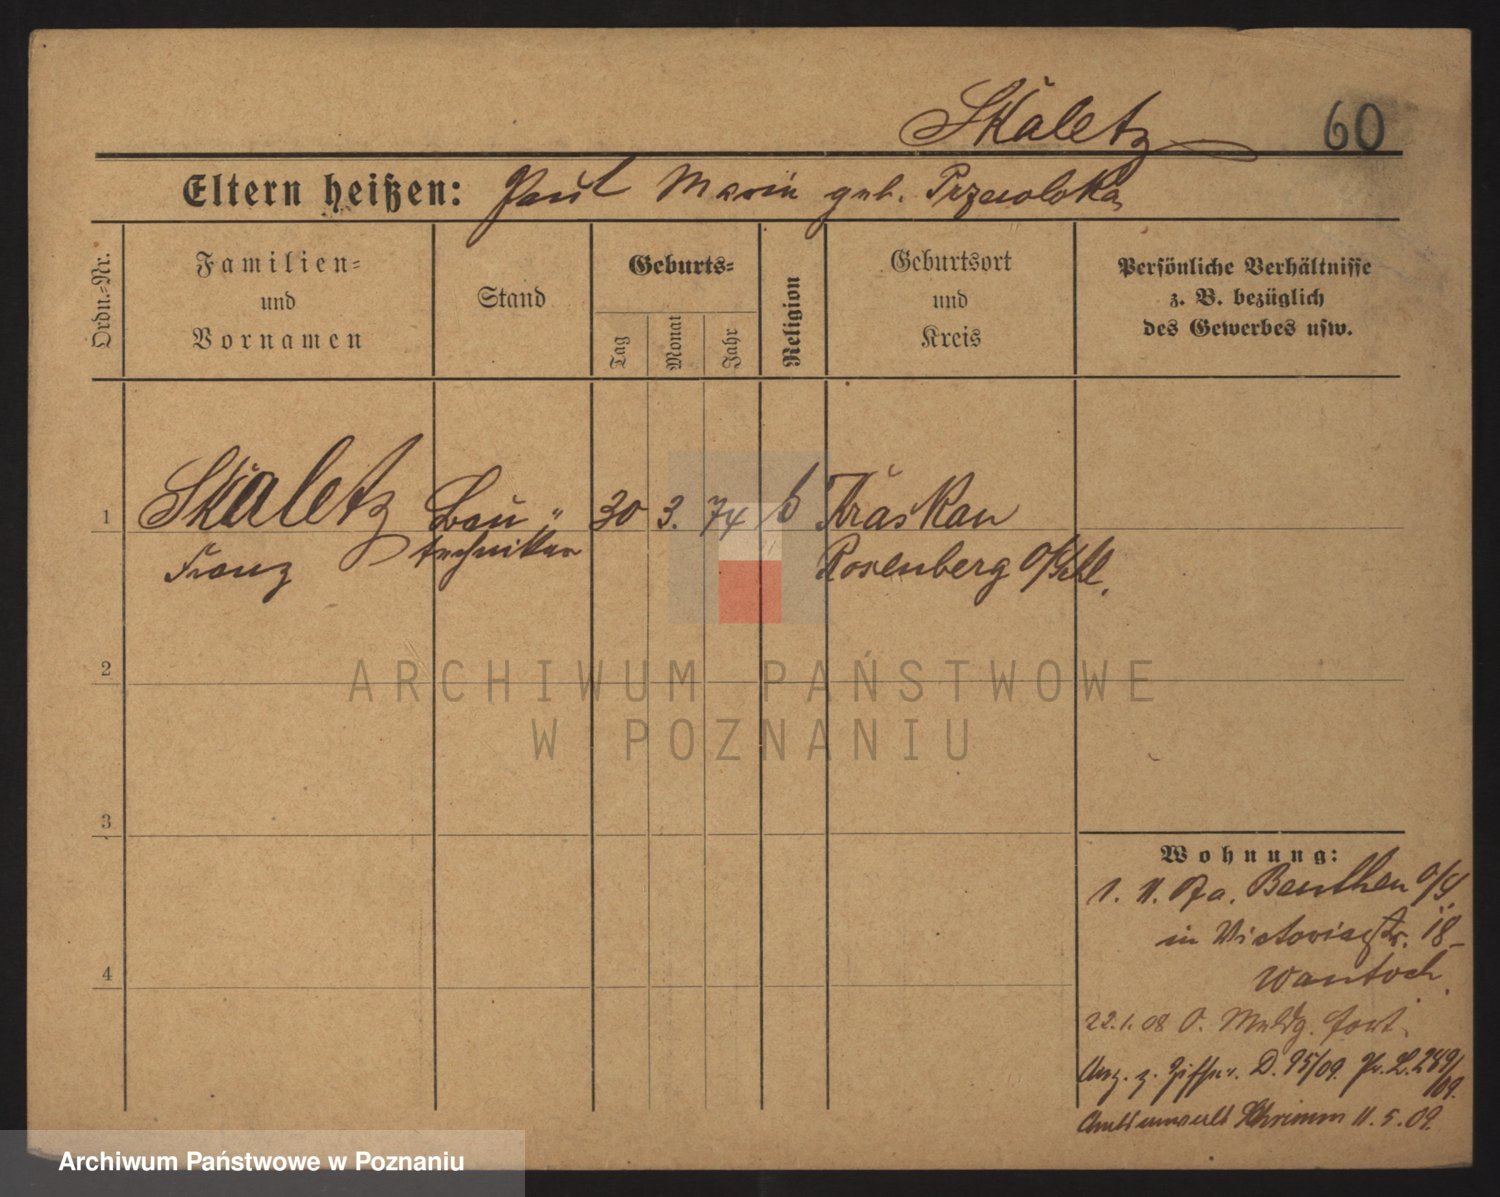 Skaletz
60
Eltern heißen: Paul Marie geb. Przewoloka
Ordn.=Nr.
Familien=
und
Vornamen
Stand
Geburts=
Tag
Monat
Jahr
Religion
Geburtsort
und
Kreis
Persönliche Verhältnisse
z. B. bezüglich
des Gewerbes usw.
1
Skaletz
Franz
Bau "
techniker
30 3. 74
Kraskau
Rosenberg O/Schl.
2
3
4
Wohnung:
1. 11. 07 a. Beuthen O/S
in Victoriastr. 18
Wantoch
22.1.08 O. Meldg. fort.
Anz. z. Ziffer. D. 95/09. Pr. L. 289/
/09.
Schrimm 11.5.09.
ARCHIWUM PAŃSTWOWE
W POZNANIU
Archiwum Państwowe w Poznaniu